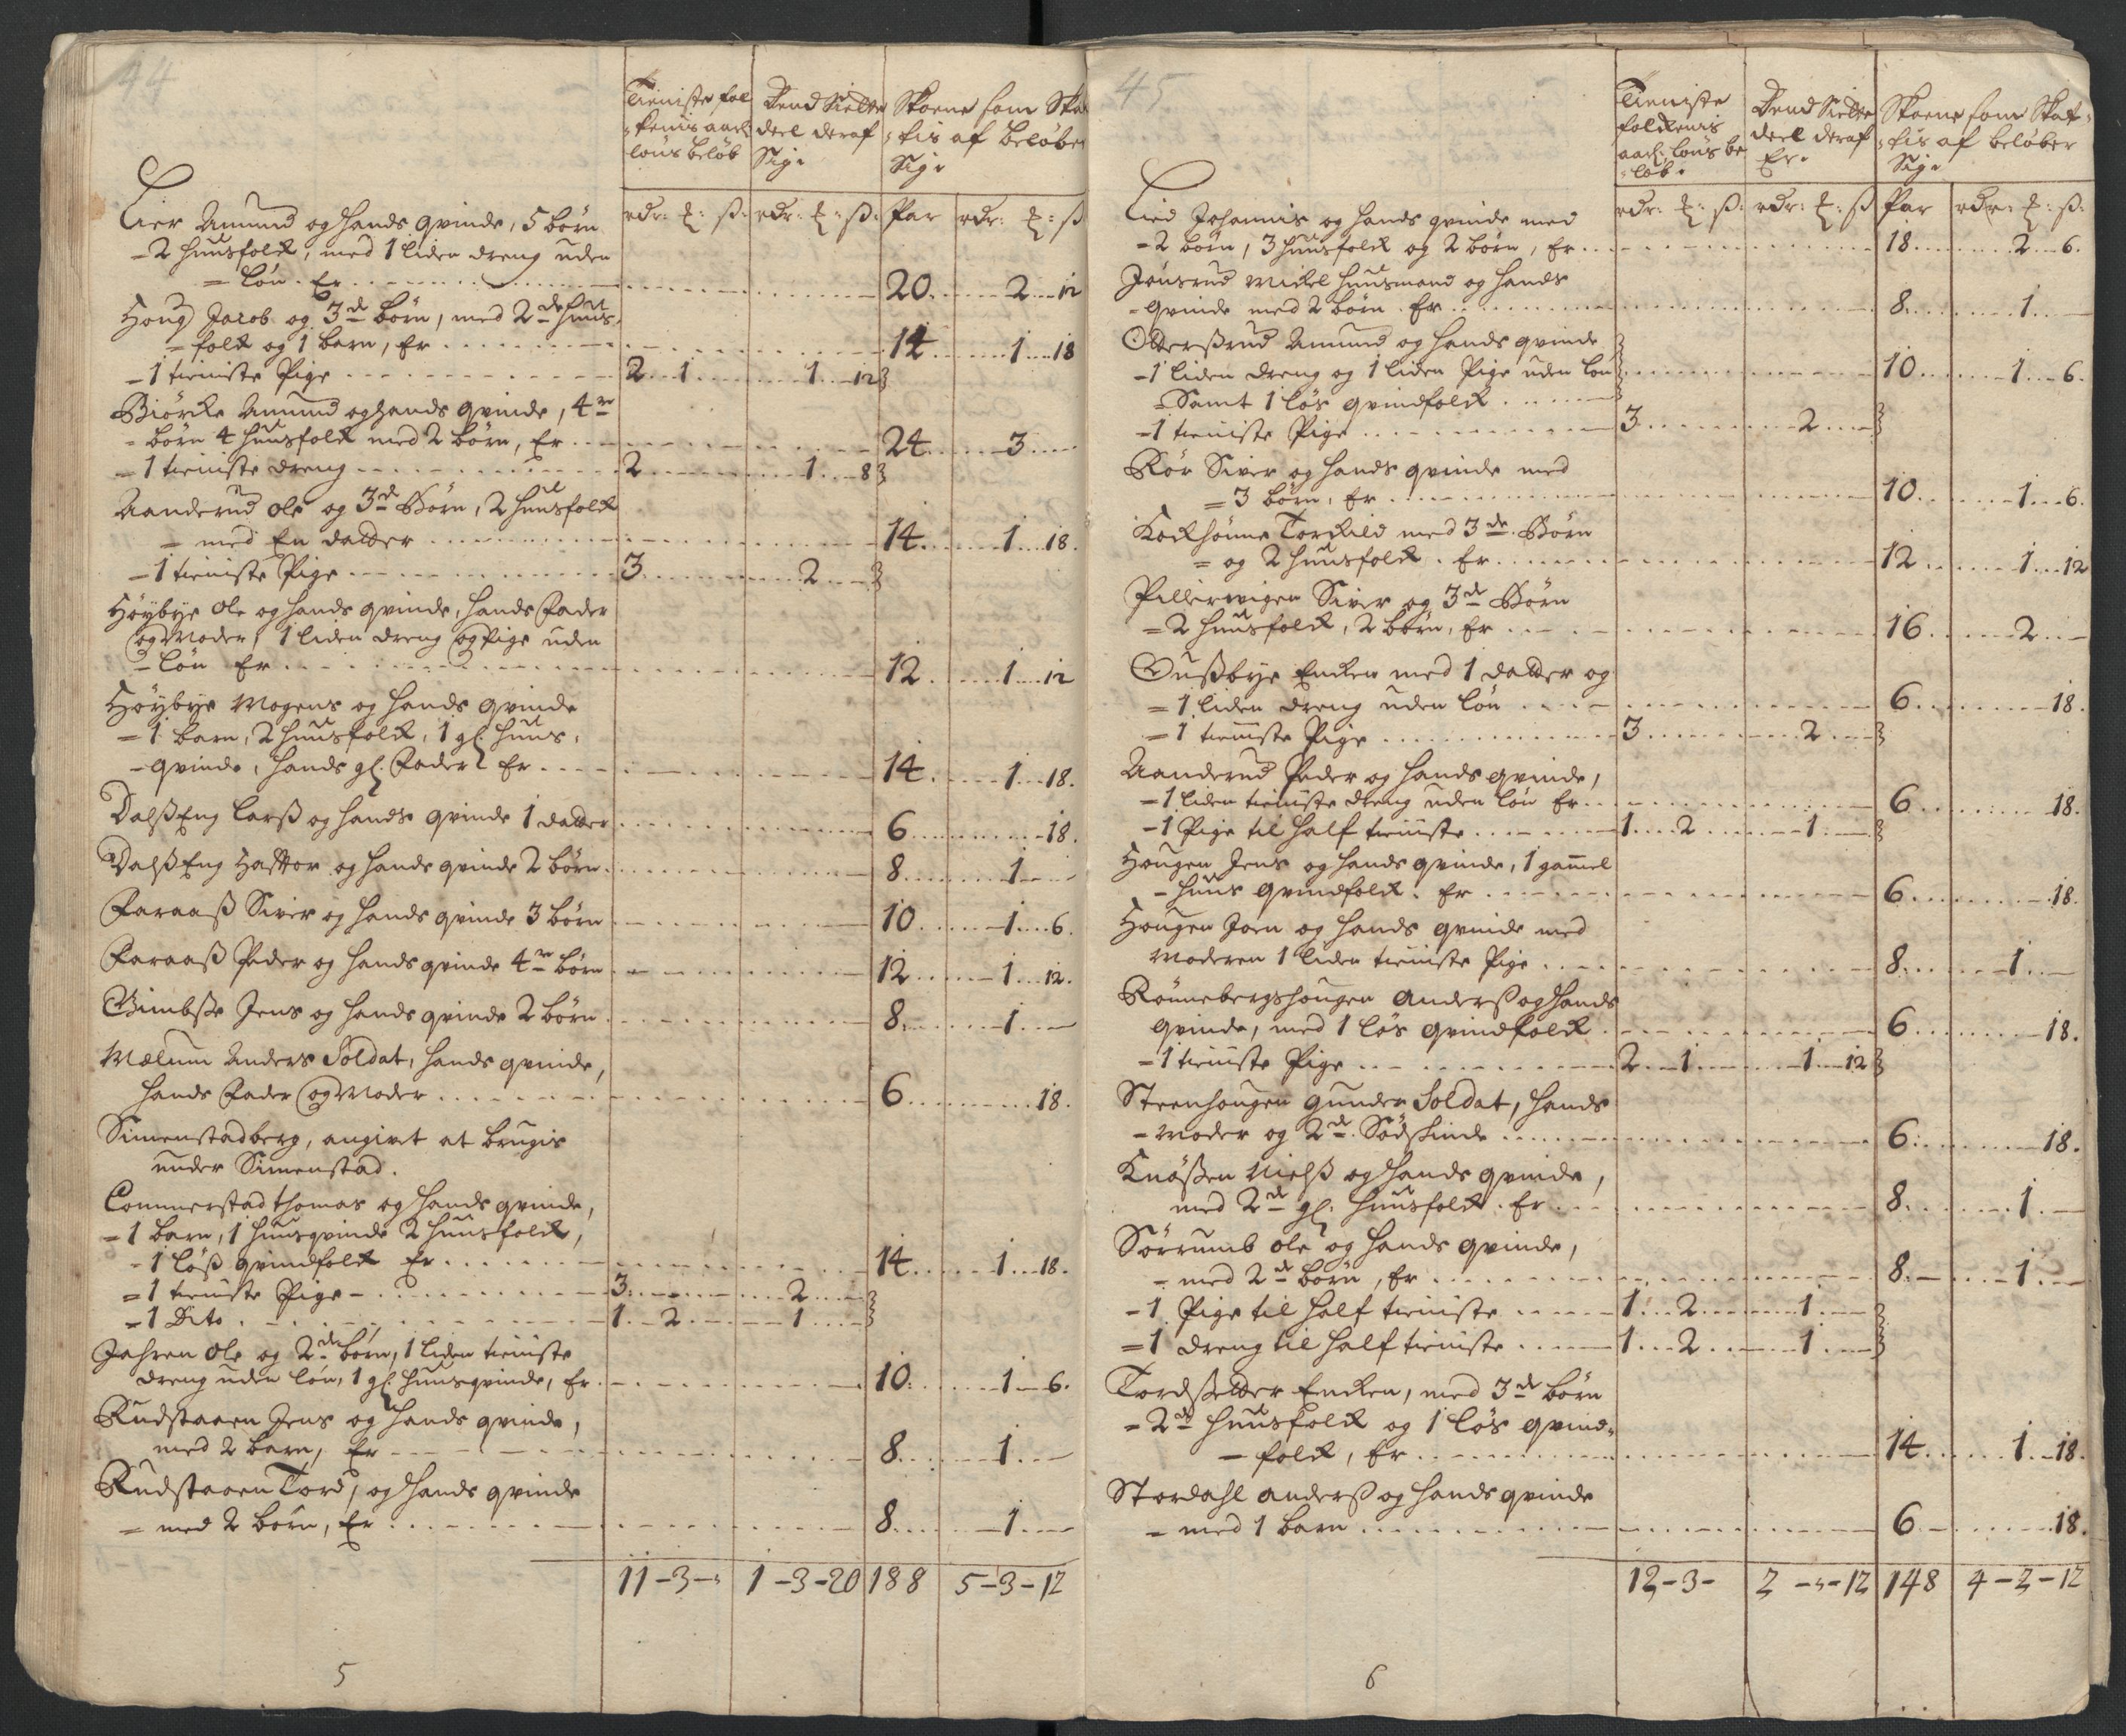 44
Tieniste fol
kenis aarl:
löns beløb
Dend Siette
deel deraf
Sig:
Skoene som Skat
tis af beløber
Sig:
rdr: £: ß: rdr: £: ß: Par rdr: £: ß
Lier Amund og hands qvinde, 5 børn
- 2 huusfolck, med 1 liden dreng uden
= løn. Er 20 2 12
Houg Jacob og 3de børn, med 2de huus
= folck og 1 barn, Er 14 1 18
- 1 tieniste Pige 2 1 1 12
Biörcke Amund og hands qvinde, 4re
- børn 4 huusfolck med 2 børn, Er 24 3
- 1 tieniste dreng 2 1 8
Aanderud Ole og 3de Børn, 2 huusfolck
= med En datter 14 1 18.
- 1 tieniste Pige 3 2
Höybye Ole og hands qvinde, hands Fader
og Moder, 1 liden dreng og Pige uden
- løn Er 12 1 12
Höybye Mogens og hands qvinde
- 1 barn, 2 huusfolck, 1 gl: huus
- qvinde, hands gl. Fader Er 14 1 18.
DalsEng Larß og hands qvinde 1 datter 6 18.
DalsEng Hastor og hands qvinde 2 børn 8 1
Faraaß Siver og hands qvinde 3 børn 10 1 6.
Faraaß Peder og hands qvinde 4re børn 12 1 12.
Gimbße Jens og hands qvinde 2 børn 8 1
Mælum Anders Soldat, hands qvinde,
hands Fader og Moder 6 18.
Simenstadberg, angivet at brugis
under Simenstad.
Commerstad Thomas og hands qvinde,
- 1 barn, 1 huusqvinde 2 huusfolck,
- 1 löß qvindfolck Er 14 1 18.
= 1 tieniste Pige 3 2
- 1 Dito 1 2 1
Jahren Ole og 2de børn, 1 liden tieniste
dreng uden løn, 1 gl: huusqvinde, Er 10 1 6.
Rudstaaen Jens og hands qvinde,
med 2 børn, Er 8 1
Rudstaaen Tord, og hands qvinde
= med 2 børn, Er 8 1
11-3- 1-3-20 188 5-3-12
5
45
Tieniste
folckenis
aarl: löns be
løb.
Dend Siette
deel deraf
Er.
Skoene som Skat
tis af beløber
Sig:
rdr: £: ß: rdr: £: ß Par rdr: £: ß:
Lied Johannis og hands qvinde med
- 2 børn, 3 huusfolck og 2 børn, Er 18 2 6.
Jonsrud Mickel huusmand og hands
- qvinde med 2 børn. Er 8 1
Otterßrud Amund og hands qvinde
- 1 liden dreng og 1 liden Pige uden løn 10 1 6.
- Samt 1 lös qvindfolck
- 1 tieniste Pige 3 2
Rör Siver og hands qvinde med
= 3 børn, Er 10 1 6.
Kockhönne Torckild med 3de Børn
= og 2 huusfolck. Er 12 1 12
Pillerwigen Siver og 3de Børn
- 2 huusfolck, 2 børn, Er 16 2
Gußbye Encken med 1 datter og
= 1 liden dreng uden løn 6 18.
= 1 tieniste Pige 3 2
Aanderud Peder og hands qvinde,
- 1 liden tieniste dreng uden løn Er 6 18.
- 1 Pige til half tieniste 1 2 1
Hougen Jens og hands qvinde, 1 gammel
- huus qvindfolck. Er 6 18.
Hougen Joen og hands qvinde med
Moderen 1 liden tieniste Pige 8 1
Rönnebergshougen Anderß og hands
qvinde, med 1 lös qvindfolck 6 18.
- 1 tieniste Pige 2 1 1 12
Steenhougen Gunder Soldat, hands
- Moder og 2de Södskinde 6 18.
Knößen Nielß og hands qvinde,
med 2de gl: huusfolck. Er 8 1
Sörrumb Ole og hands qvinde,
- med 2de børn, Er 8 1
- 1 Pige til half tieniste 1 2 1
= 1 dreng til half tieniste 1 2 1
Tordßætter Encken, med 3de børn
- 2de huusfolck og 1 lös qvind
- folck, Er 14 1 18.
Stordahl Anderß og hands qvinde
- med 1 barn 6 18.
12-3- 2 - -12 148 4-2-12
6